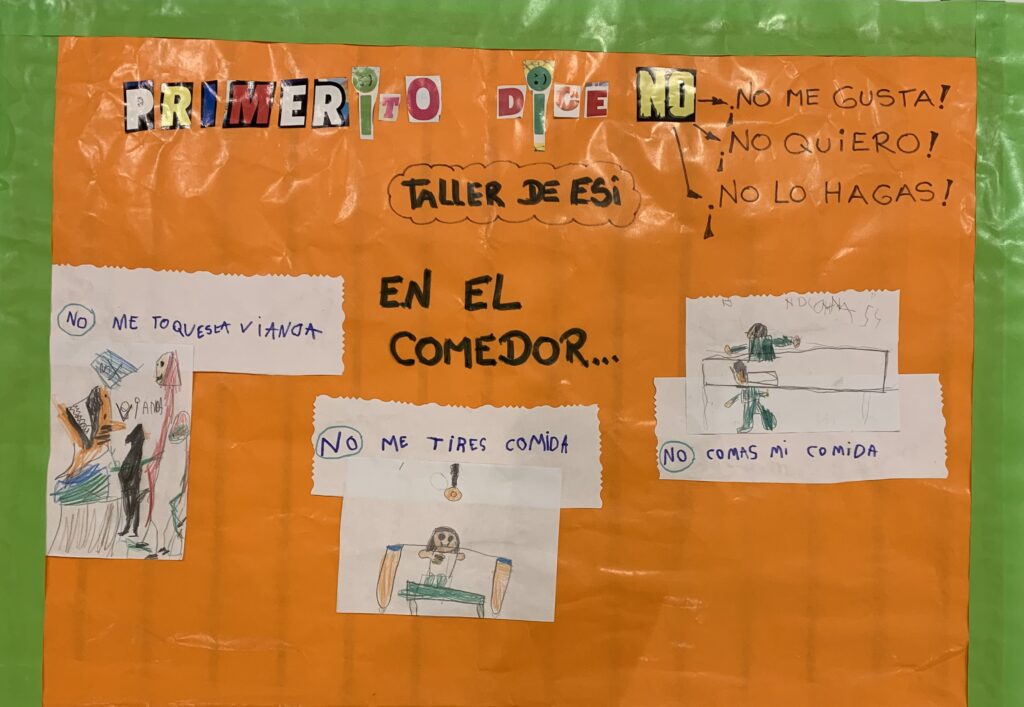 PRIMERiTO DiCE NO
¡NO ME GUSTA!
¡NO QUiERO!
¡NO LO HAGAS!
TALLER DE ESi
EN EL
COMEDOR...
NO ME TOQUES LA VIANDA
VIANDA
NO ME TIRES COMIDA
NO COMAS MI COMIDA